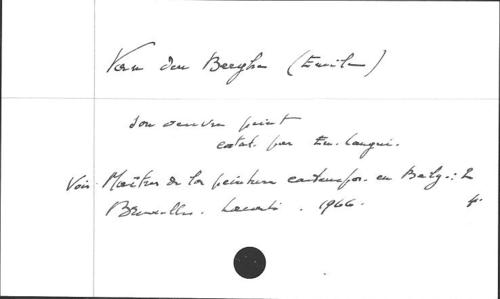 Van den Berghe (Emile)
Son oeuvre peint
catal. par Em. Langui.
Voir Maîtres de la peinture contempor. en Belg.: 2
Bruxelles. Laconti. 1966. 4°